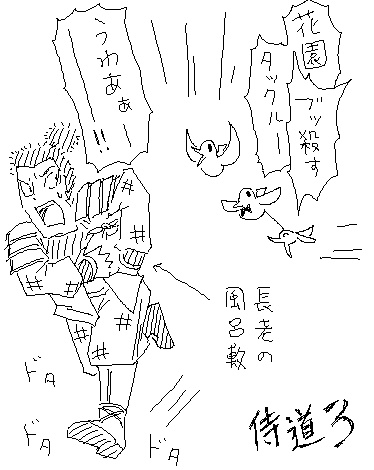 花園ブッ殺す
タックルー
うわあぁー!!
長老の
風呂敷
ドタ
ドタ
ドタ
侍道3